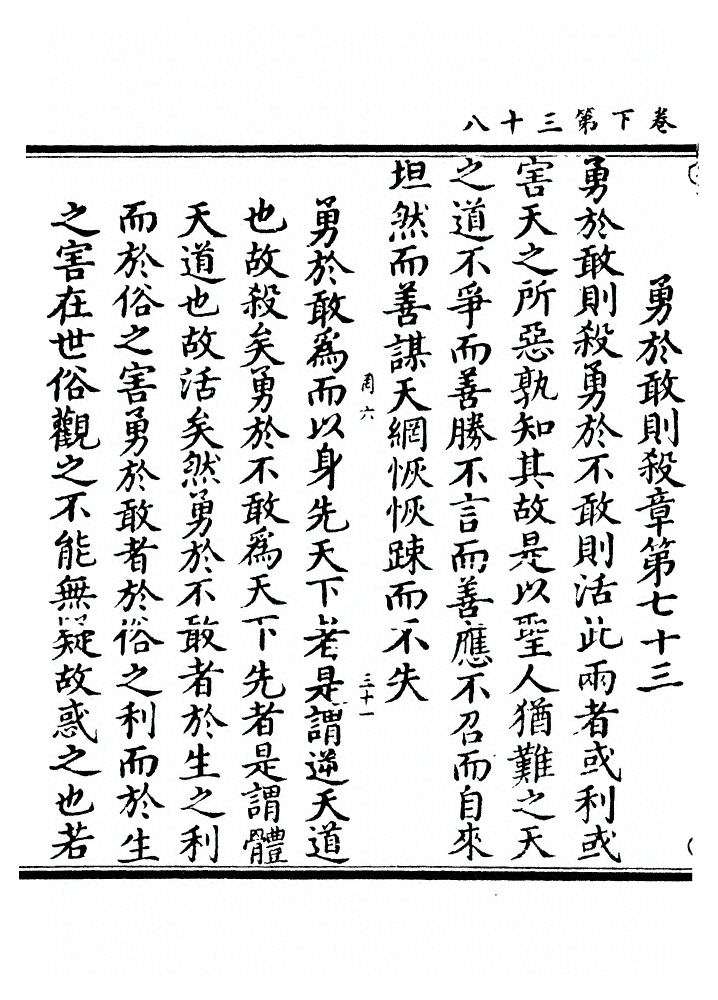 卷下第三十八
勇於敢則殺章第七十三
勇於敢則殺勇於不敢則活此兩者或利或
害天之所惡孰知其故是以聖人猶難之天
之道不爭而善勝不言而善應不召而自來
坦然而善謀天網恢恢踈而不失
周六
三十一
勇於敢為而以身先天下者是謂逆天道
也故殺矣勇於不敢為天下先者是謂體
天道也故活矣然勇於不敢者於生之利
而於俗之害勇於敢者於俗之利而於生
之害在世俗觀之不能無疑故惑之也若